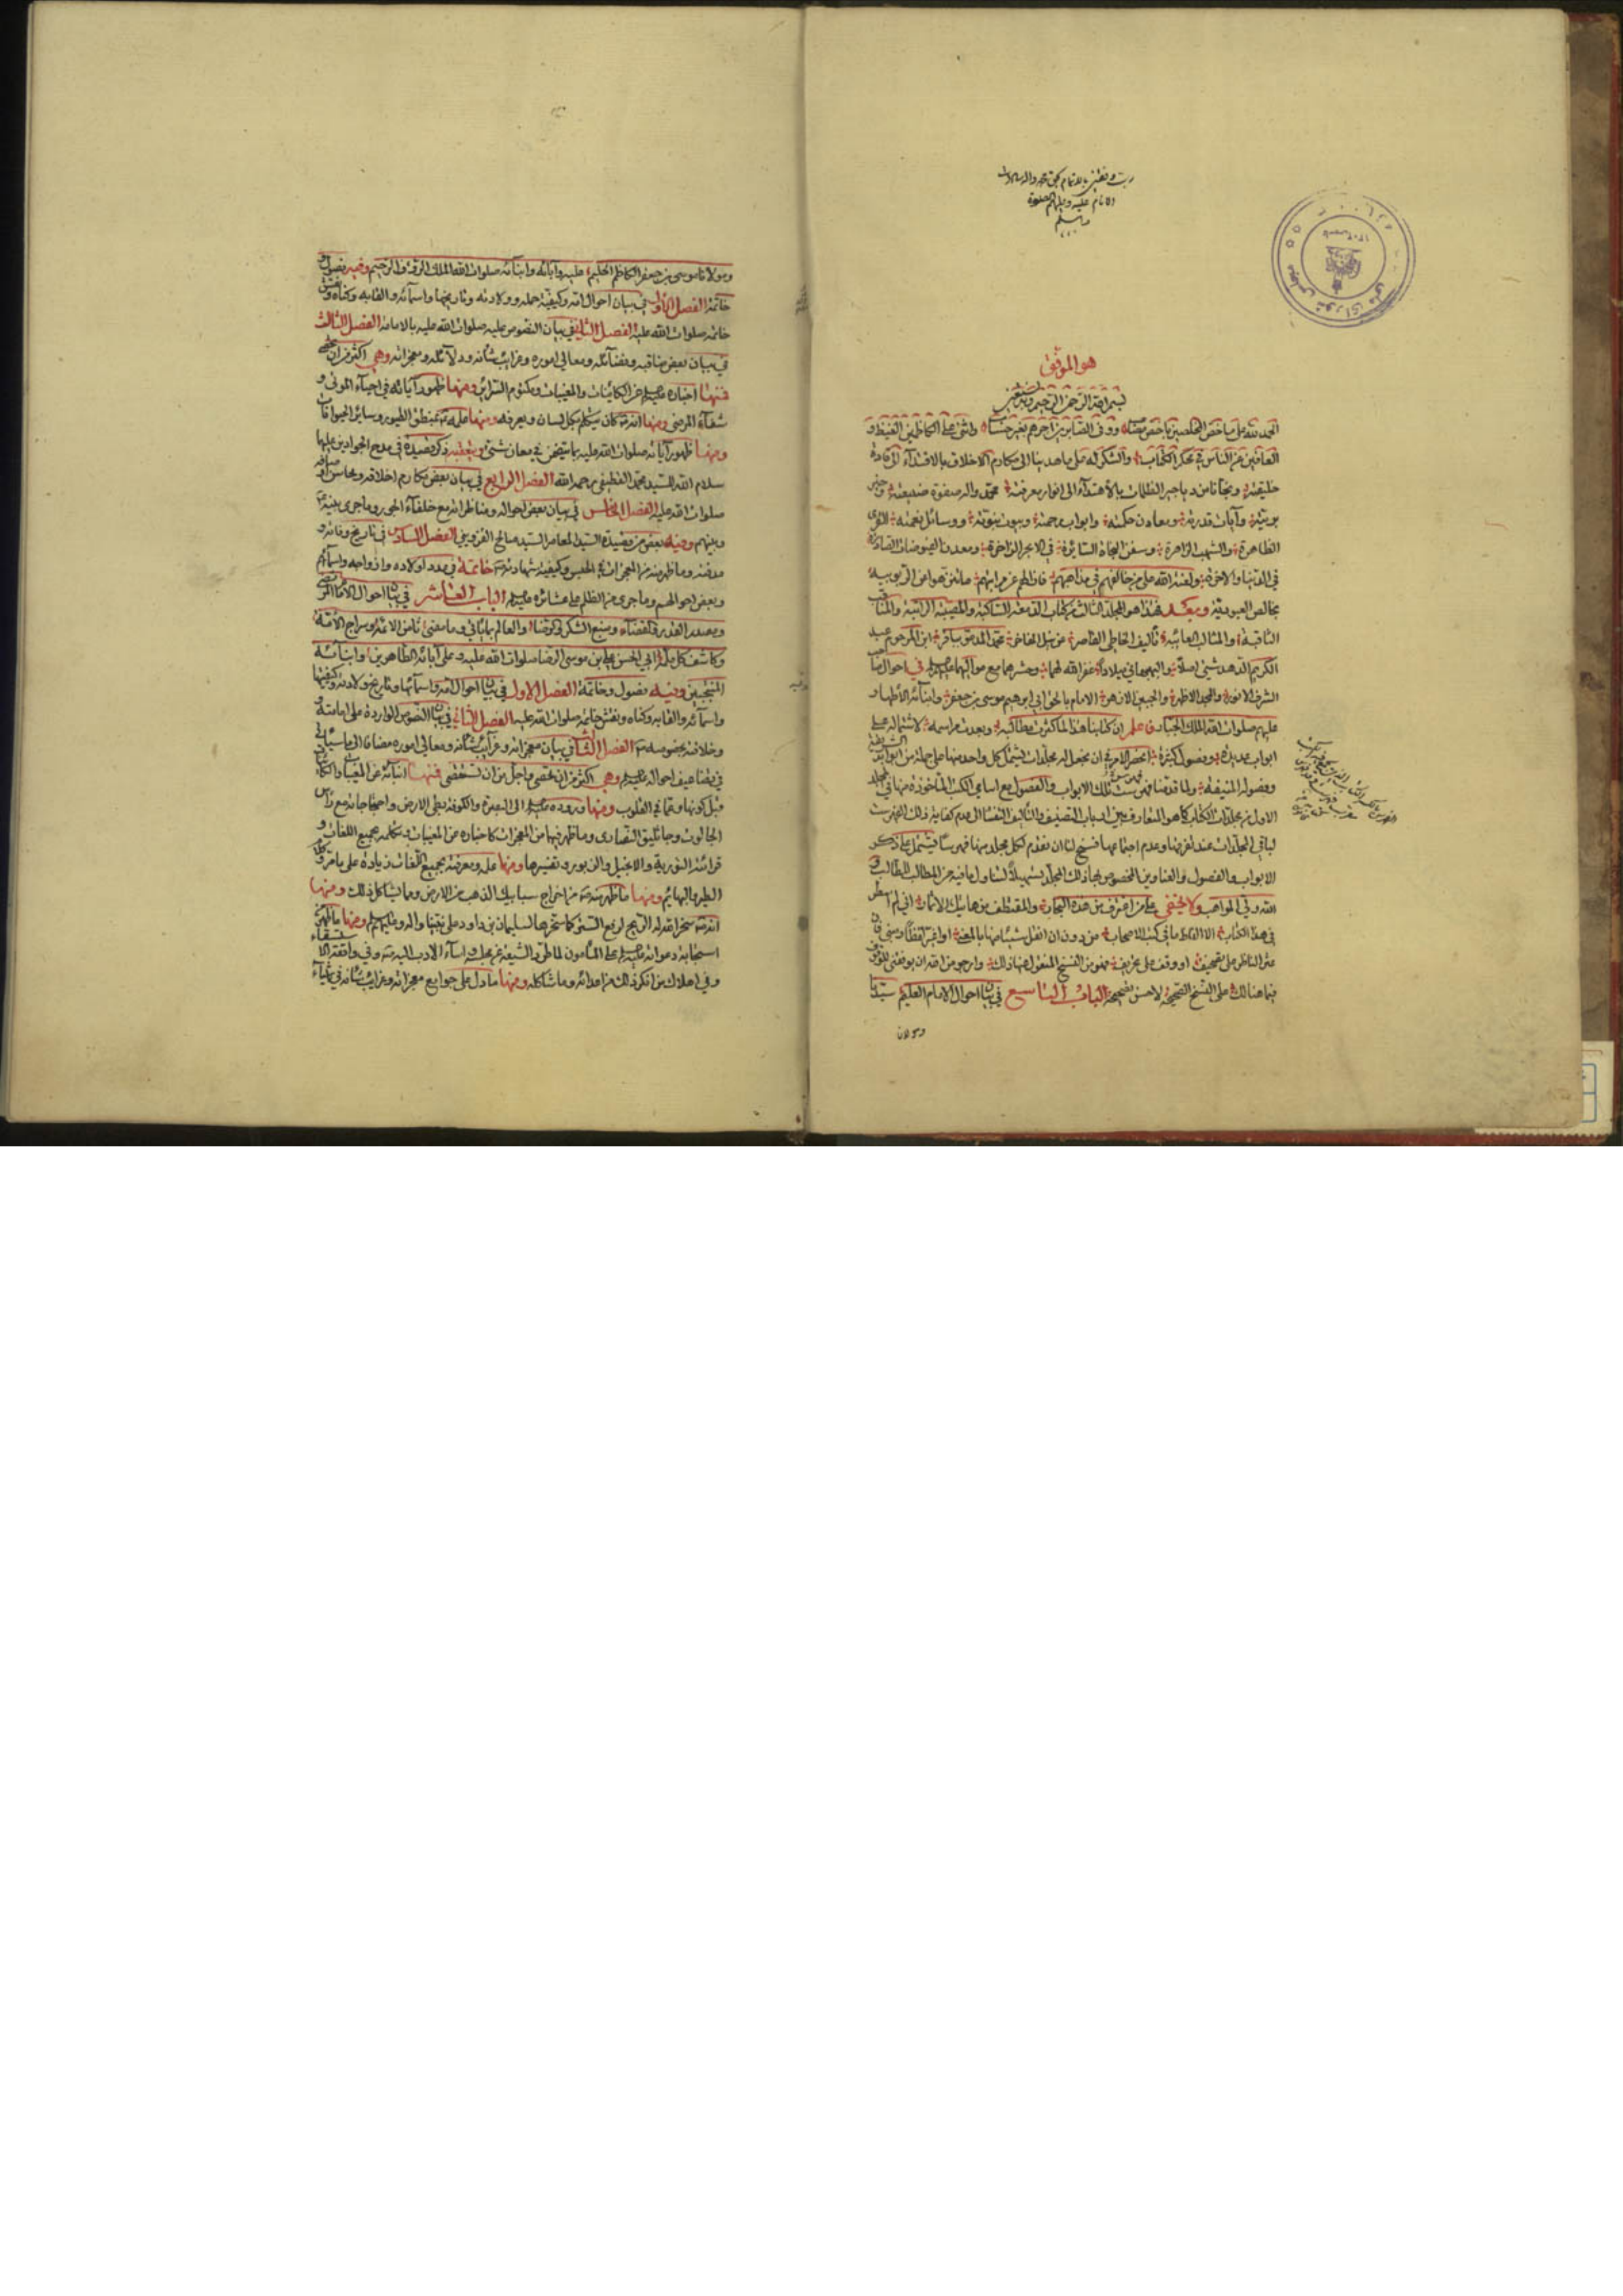 رب وفقني بالاتمام بحق محمد واله سادات
الانام عليه وعليهم الصلوة
والسلم
هو الموفق
بسم الله الرحمن الرحيم وبه نستعين
الحمد لله على ما خص المخلصين باخص ووفى الصابرين اجرهم بغير حساب واثنى على الكاظمين الغيظ و
العافين عن الناس في محكم الكتاب والشكر له على ما هدينا الى مكارم الاخلاق بالاقتداء الى قادة
خليقته ونجانا من دياجير الظلمات بالاهتداء الى انوار معرفته محمد واله صفوة
بريته وآيات قدرته ومعادن حكمته وابواب رحمته وبيوت نبوته ووسائل نعمته القرى
الظاهرة والشهب الزاهرة وسفن النجاة السائرة في الابحر الزاخرة ومعدن الفيوضات
في الدنيا والاخرة ولعنة الله على من خالفهم في مذاهبهم عن مراتبهم من الربوبية
بخالص العبودية وبعد فهذا هو المجلد الثالث من كتاب الدمعة الساكبة والمصيبة الراتبة والمناقب
الثاقبة والمثالب العائبة تأليف الخاطي القاصر محمد المدعو بباقر ابن المرحوم عبد
الكريم الدهدشتي اصلا والبهبهاني ميلادا غفر الله لهما وحشرهما مع مواليهما في احوال
الامام بالحق ابي ابرهيم موسى بن جعفر وابنائه الاطهار
عليهم صلوات الله الملك الجبار فاعلم ان كتابنا هذا لما كثرت مطالبه وبعدت مراسمه لاشتماله على
ابواب عديدة وفصول كثيرة انحصر الامر في ان نجعل له مجلدات يشتمل كل واحد منها على جملة من ابوابه
وفصوله المنيفة ولما قدمنا فهرست تلك الابواب والفصول مع اسامي الكتب المأخوذة منها في المجلد
الاول من مجلدات الكتاب كما هو المتعارف بين ارباب التصنيف والتأليف التفتنا الى عدم كفاية ذلك الفهرست
لباقي المجلدات عند تفرقها وعدم اجتماعها فسنح لنا ان نقدم لكل مجلد منها فهرستا يشتمل على ذكر
الابواب والفصول والعناوين المخصوص بها ذلك المجلد تسهيلا لتناول ما فيه من المطالب للطالب و
الله ولي المواهب ولا يخفى على من اغترف من هذه البحار والمقتطف من هاتيك الاثمار اني لم اسطر
في هذا الكتاب الا الفاظ ما في كتب الاصحاب من دون ان انقل شيئا منها بالمعنى او اغير لفظا ومبنى فان
عثر الناظر على تصحيف او وقف على تحريف فهو من النسخ المنقول عنها ذلك وارجو من الله ان يوفقني للوقوف
فيما هنالك على النسخ الصحيحة لاحسن تصحيحه الباب التاسع في بيان احوال الامام العليم سيدنا
ومولانا
ومولانا موسى بن جعفر الكاظم الحليم عليه وآبائه وابنائه صلوات الله الملك الرؤف الرحيم وفيه فصول و
خاتمة الفصل الاول في بيان احوال امه وكيفية حمله وولادته وتاريخها واسمائه والقابه وكناه ونقش
خاتمه صلوات الله عليه الفصل الثاني في بيان النصوص عليه صلوات الله عليه بالامامة الفصل الثالث
في بيان بعض مناقبه وفضائله ومعالي اموره وغرائب شأنه ودلائله ومعجزاته وهي اكثر من ان تحصى
فمنها اخباره عن الكائنات والمغيبات ومكتوم السرائر ومنها ظهور آياته في احياء الموتى و
شفاء المرضى ومنها انه كان يتكلم بكل لسان ويعرفه ومنها علمه بمنطق الطيور وسائر الحيوانات
ومنها ظهور آياته صلوات الله عليه في معان شتى ذكر قصيدة في مدح الجوادين عليهما
سلام الله للسيد محمد القطيفي رحمه الله الفصل الرابع في بيان بعض مكارم اخلاقه ومحاسن اوصافه
صلوات الله عليه الفصل الخامس في بيان بعض احواله ومناظراته مع خلفاء الجور وما جرى بينه
وبينهم وفيه بعض من قصيدة السيد المعاصر السيد صالح القزويني الفصل السادس في تاريخ وفاته و
مدفنه وما ظهر منه من المعجزات في الحبس وكيفية شهادته خاتمة في عدد اولاده وازواجه واسمائهم
وبعض احوالهم وما جرى من الظلم على عشائره الباب العاشر في بيان احوال الامام المرتضى
ومصدر القدر والقضاء ومنبع الشكر والرضا والعالم بما يأتي وما مضى ثامن الائمة وسراج الامة
وكاشف كل ملمة ابي الحسن علي بن موسى الرضا صلوات الله عليه وعلى آبائه الطاهرين وابنائه
المنتجبين وفيه فصول وخاتمة الفصل الاول في بيان احوال امه واسمائها وتاريخ ولادته وكيفيتها
واسمائه والقابه وكناه ونقش خاتمه صلوات الله عليه الفصل الثاني في بيان النصوص الواردة على امامته و
وخلافته بخصوصه الفصل الثالث في بيان معجزاته وغرائب شأنه ومعالي اموره مضافا الى ما سيأتي
في تضاعيف احواله وهي اكثر من ان تحصى واجل من ان تستقصى فمنها انبائه عن المغيبات والكائنات
قبل كونها وعما في القلوب ومنها وروده الى البصرة والكوفة بطي الارض واحتجاجاته مع رأس
الجالوت وجاثليق النصارى وما ظهر فيها من المعجزات كاخباره عن المغيبات وتكلمه بجميع اللغات و
قرائته التورية والانجيل والزبور وتفسيرها ومنها علمه ومعرفته بجميع اللغات زيادة على ما مر وكلام
الطير والبهائم ومنها ما ظهر منه من اخراج سبايك الذهب من الارض وما يشاكل ذلك ومنها
انه سخر الله له الريح لرفع الستر كما سخرها لسليمان بن داود على نبينا واله وعليهم السلم ومنها ما ظهر من
استجابة دعواته على المأمون لما طرد الشيعة عن مجلسه واساء الادب اليه وفي واقعة الاستسقاء
وفي اهلاك من انكر ذلك من اعدائه وما شاكله ومنها ما دل على جوامع معجزاته وغرائب شأنه في